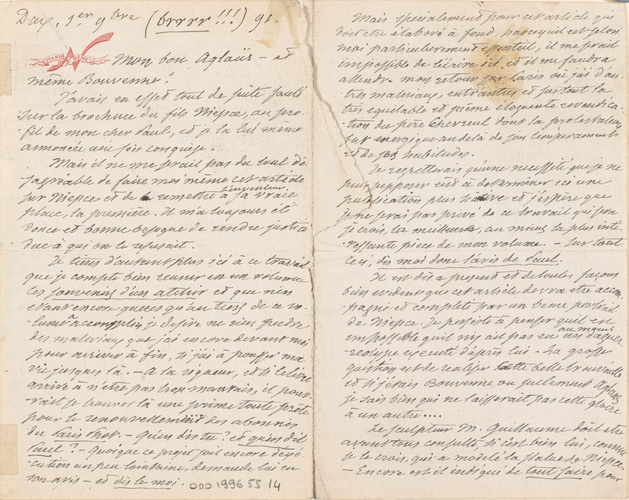 Dax, 1er 9bre (brrrr!!!) 91.
Mon bon Aglaüs – et
même Bouvenne!
J'avais en effet tout de suite sauté
sur la brochure du fils Niepce, au pro-
fit de mon cher Paul, et je la lui même
annoncée une fois conquise.
Mais il ne me serait pas du tout dé-
sagréable de faire moi même cet article
sur Niepce et de remettre l'inventeur à sa vraie
place, la première. Il m'a toujours été
douce et bonne besogne de rendre justice
due à qui on la refusait.
Je tiens d'autant plus ici à ce travail
que je compte bien réunir en un volume
les souvenirs d'un atelier et que rien
étant encore qu'au tiers de ce vo-
lume je désire ne rien perdre
des matériaux que j'ai encore devant moi
pour arriver à fin, si j'ai à pousser ma
vie jusques là. – A la rigueur, et si le livre
arrive à n'être pas trop mauvais, il pour-
rait se trouver là une prime toute prête
pour le renouvellement des abonnés
du Paris Phot. – Qu'en dis tu? et qu'en dit
Paul? – Quoique ce projet soit encore d'éxé-
cution un peu lointaine, demande lui en
son avis – et dis le moi.
000 1996 55 14
Mais spécialement pour cet article qui
doit être élaboré à fond, parcequ'il est selon
moi particulièrement essentiel, il me serait
impossible de l'écrire ici, et il me faudra
attendre mon retour sur Paris où j'ai d'au-
tres matériaux, entr'autres et surtout la
très équitable et même éloquente revendica-
tion du père Chevreul dont la protestation
fut énergique au delà de son tempérament
et de ses habitudes.
Je regretterais qu'une nécessité que je ne
puis supposer vint à déterminer ici une
publication plus hâtive et j'espère que
je ne serai pas privé de ce travail qui sera
je crois, la meilleure, au moins la plus inté-
ressante pièce de mon volume. – Sur tout
ceci, dis moi donc l'avis de Paul.
Il est dès à présent et de toutes façons
bien évident que cet article devra être accom-
pagné et complété par un beau portrait
de Niepce. Je persiste à penser qu'il est
impossible qu'il n'y ait pas eu au moins un daguer-
réotype exécuté d'après lui. – La grosse
question est de réaliser cette belle trouvaille
et si j'étais Bouvenne ou seulement Aglaüs
je sais bien qui ne laisserait pas cette gloire
à un autre....
Le sculpteur M. Guillaume doit être
avant tous consulté si c'est bien lui, comme
je le crois, qui a modelé la statue de Niepce.
– Encore est-il indiqué de tout faire pour